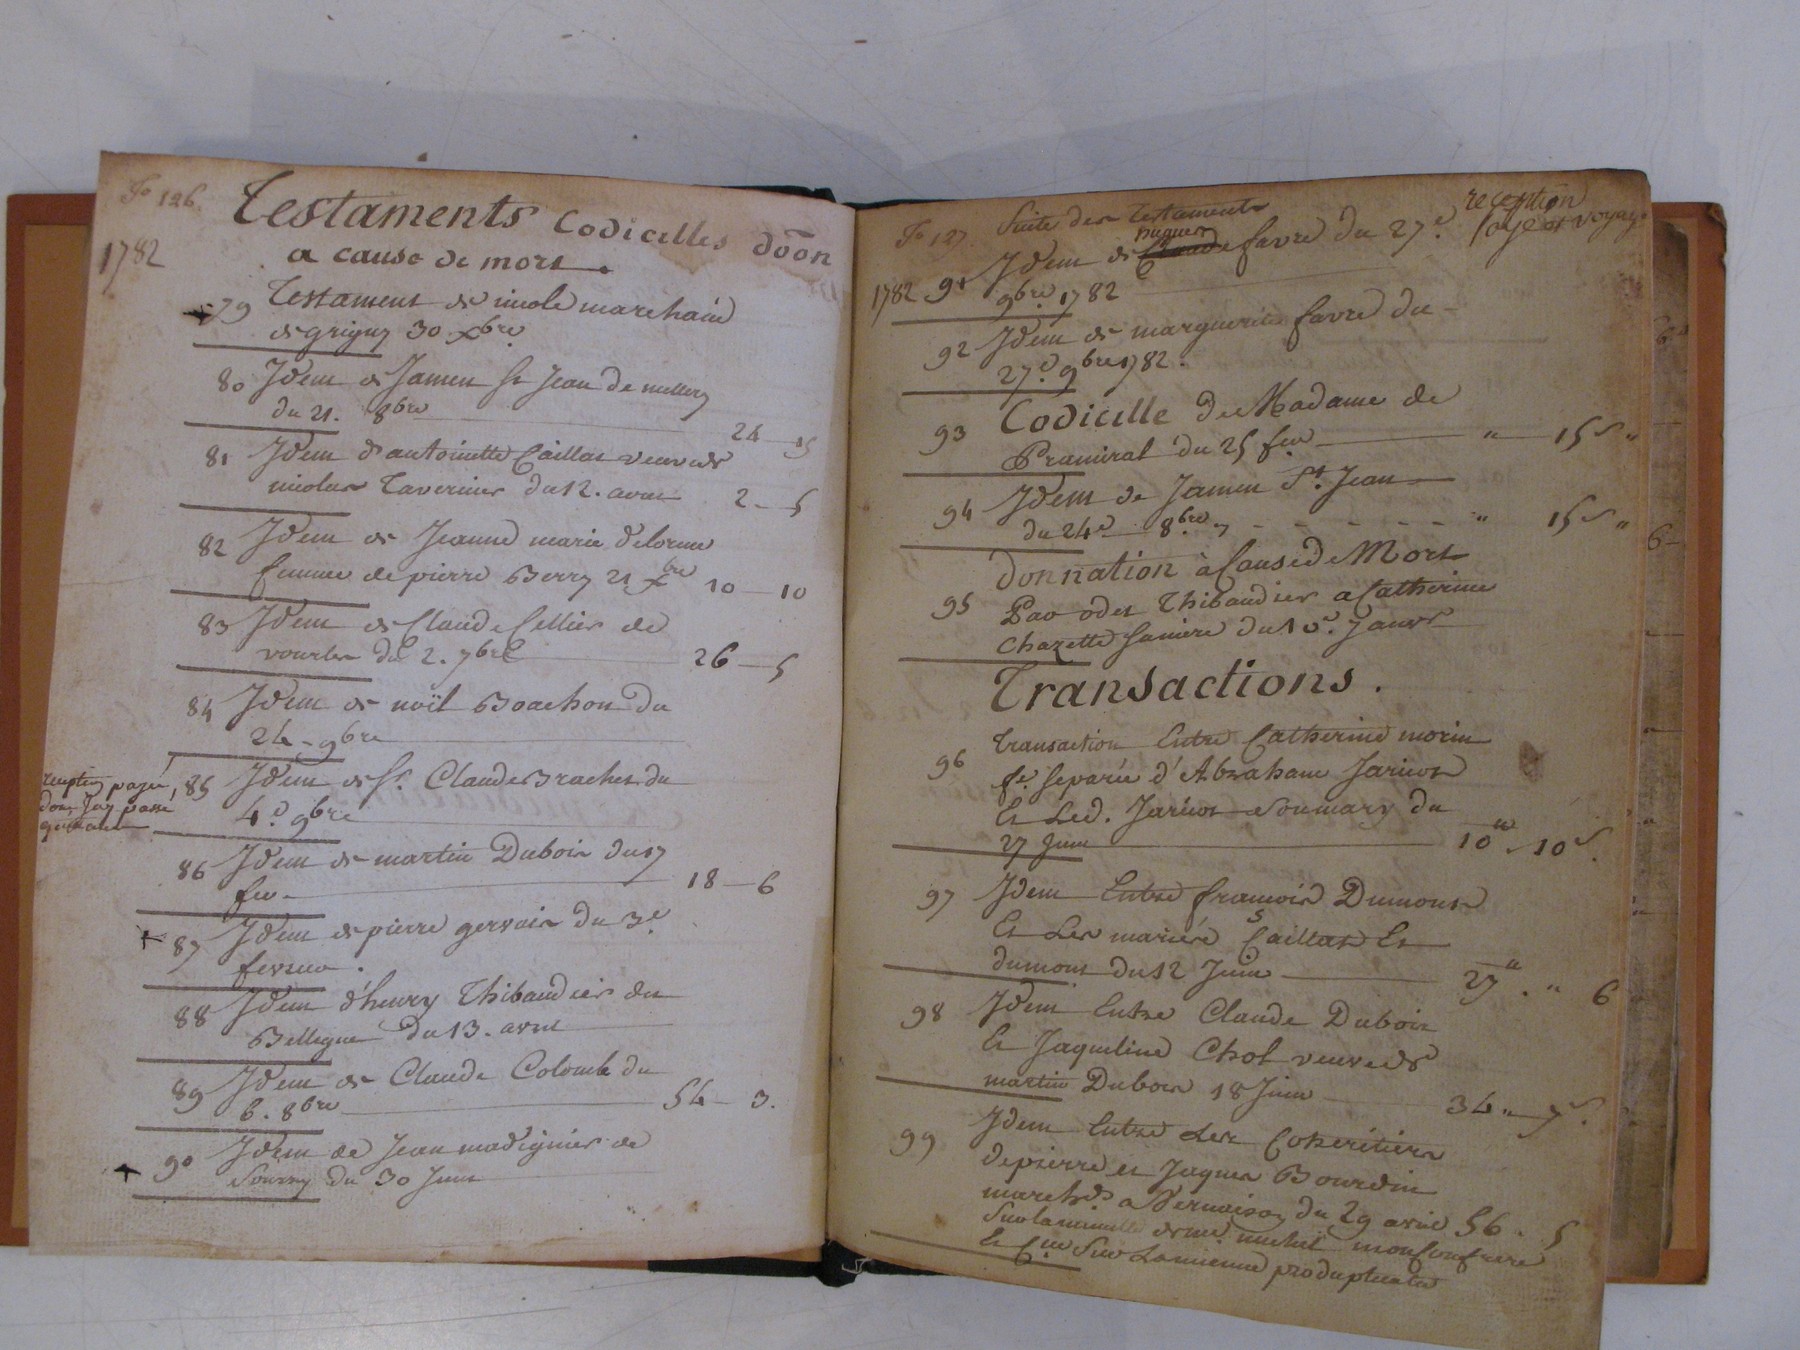 Fo 126.
Testaments Codicelles doōn
1782
a cause de mort.
79 Testament de nicole marchand
de grigny 30 xbre
80 Idem de Jamen St Jean de millery
du 21. 8bre 24 15
81 Idem d'antoinette Caillat veuve de
nicolas Tavernier du 12. avril 2 5
82 Idem de Jeanne marie delorme
femme de pierre Berry 21 xbre 10 10
83 Idem de Claude Cellier de
vourles du 2. 7bre 26 5
84 Idem de noël Boachon du
24 9bre
85 Idem de Sr. Claude Brachet du
4e 9bre
reception payée,
dont J'ay passé
quittance
86 Idem de martin Dubois du 17
fev. 18 6
87 Idem de pierre gervais du 3e
fevrier.
88 Idem d'henry Thibaudier du
Bellegue du 13. avril
89 Idem de Claude Colomb du
6. 8bre 54 3.
90 Idem de Jean madignier de
Sourzy du 30 Juin
Fo 127. Suite des Testaments
1782 91 Idem de hugues favre du 27e. reception
paye et voyage
9bre 1782
92 Idem de marguerite favre du
27e. 9bre 1782.
93 Codicelle de Madame de
Pramiral du 25 fev. " 15 s "
94 Idem de Jamen St. Jean
du 24e 8bre " 15 s "
donnation à Cause de Mort
95 Par odet Thibaudier a Catherine
Chazette du 10e. Janvr
Transactions.
96 Transaction Entre Catherine morin
fe. separée d'Abraham Jaricot
Et Led. Jaricot Son mary du
27 Juin 10 10 s.
97 Idem Entre francois Dumont
Et Les mariés Caillat Et
dumont du 12 Juin 27. " 6
98 Idem Entre Claude Dubois
Et Jaqueline Chol veuve de
martin Dubois 18 Juin 34 " 7 s.
99 Idem Entre Les Coheritiers
de pierre et Jaques Bourdin
marchds a Vernaison du 29 avril 56. 5
Sur la minutte de me. michel mon Confrere
Et Cue Sur La mienne pro duplicata